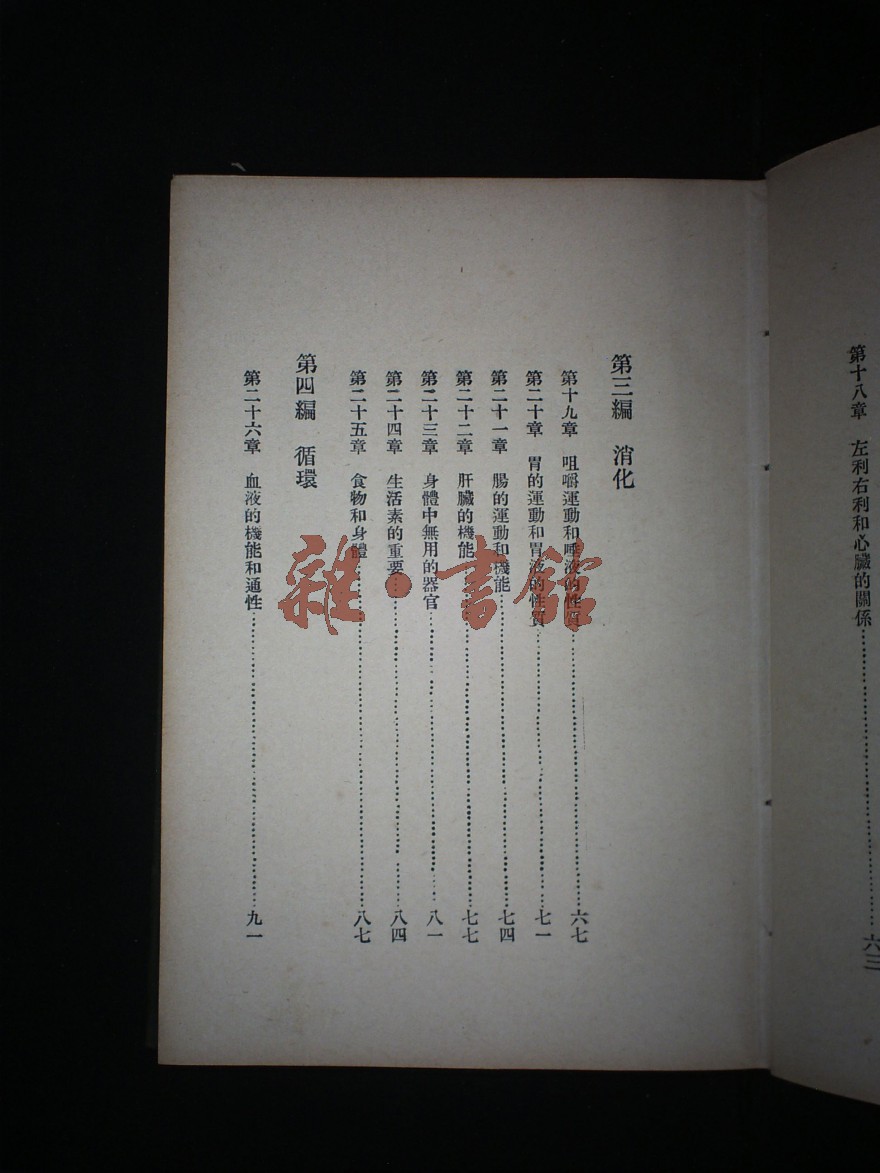 第十八章　左利右利和心臟的關係……六三
第三編　消化
第十九章　咀嚼運動和唾液的性質……六七
第二十章　胃的運動和胃液的性質……七一
第二十一章　腸的運動和機能……七四
第二十二章　肝臟的機能……七七
第二十三章　身體中無用的器官……八一
第二十四章　生活素的重要……八四
第二十五章　食物和身體……八七
第四編　循環
第二十六章　血液的機能和通性……九一
雜·書館